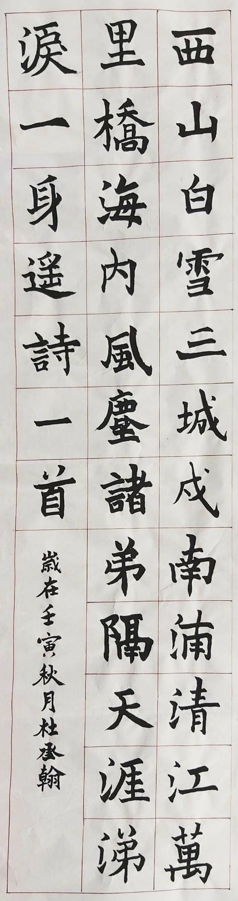 西山白雪三城戍南浦清江萬
里橋海内風塵諸弟隔天涯涕
淚一身遥詩一首
歲在壬寅秋月杜丞翰